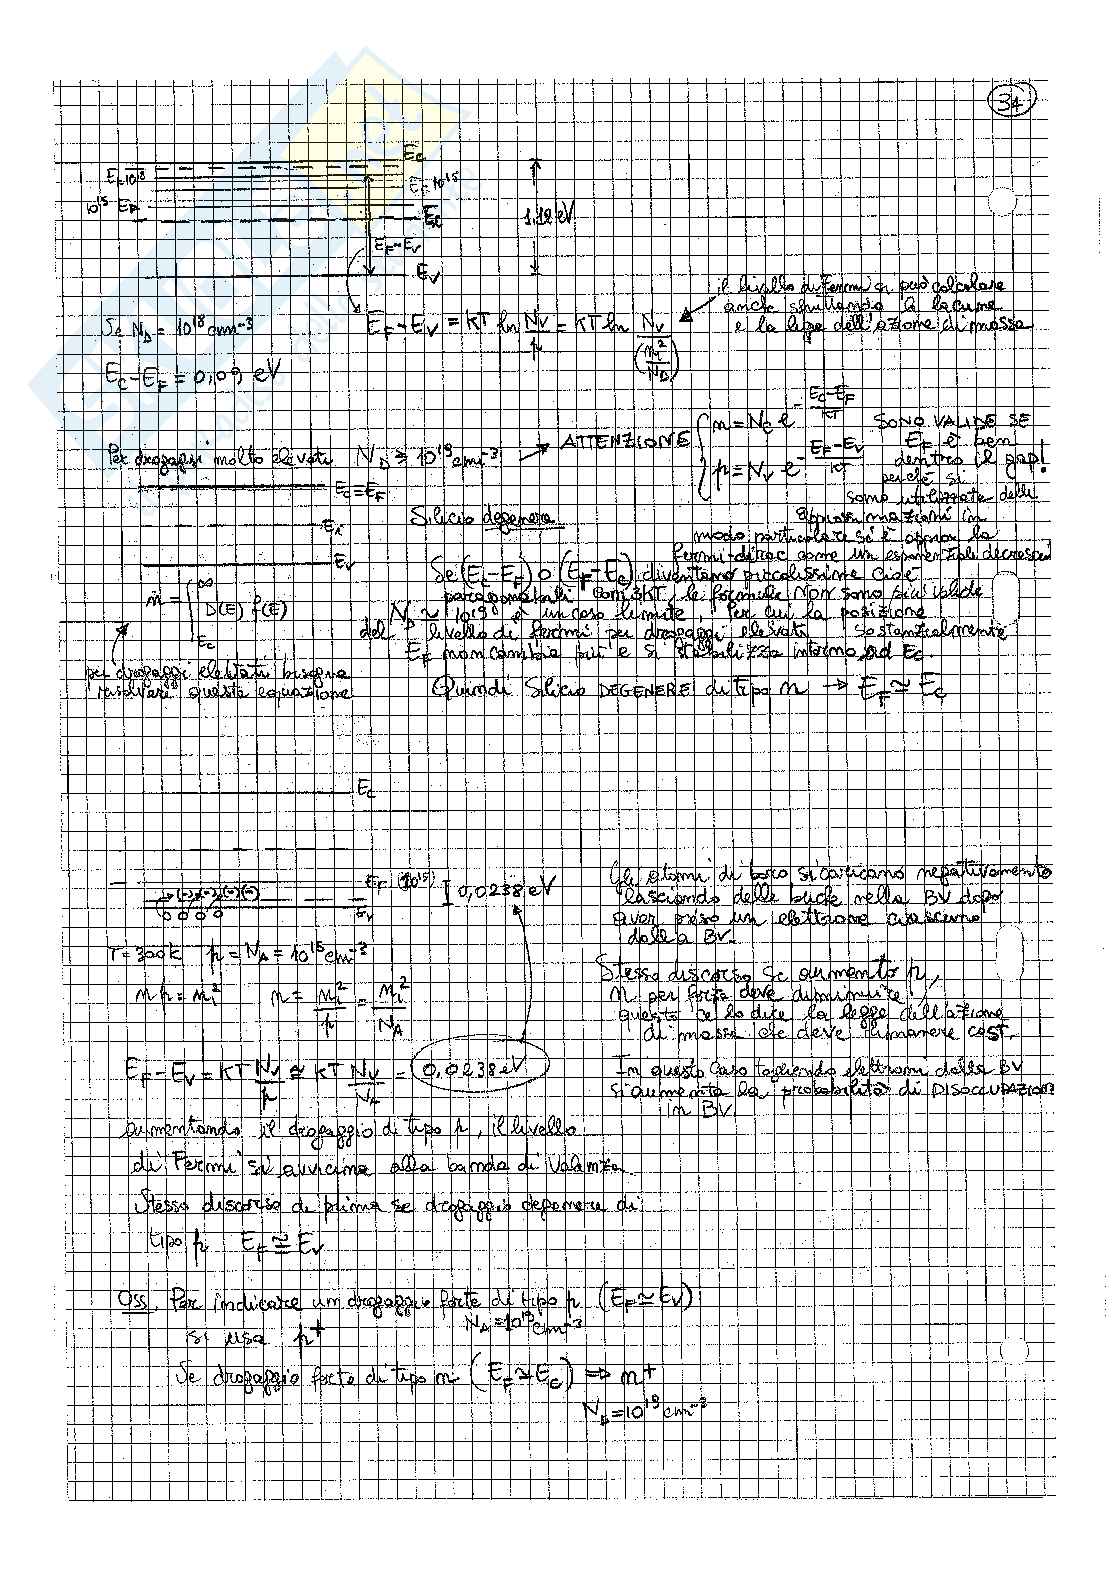 34
Ec
EF 10¹⁸
EF 10¹⁵
10¹⁵ EF
Ei
1,12 eV
EF-EV
EV
il livello di Fermi si può calcolare
anche sfruttando le lacune
e la legge dell'azione di massa
Se ND = 10¹⁸ cm⁻³
EF-EV = KT ln NV/p = KT ln NV/(ni²/ND)
EC-EF = 0,09 eV
Per drogaggi molto elevati ND ≥ 10¹⁹ cm⁻³ → ATTENZIONE
n = NC e^-(EC-EF)/KT
p = NV e^-(EF-EV)/KT
SONO VALIDE SE
EF è ben
dentro il gap!
perché si
sono utilizzate delle
approssimazioni in
modo particolare si è appros. la
Fermi-Dirac come un esponenziale decresc.
EC=EF
Ei
EV
Silicio degenere
n = ∫ D(E) f(E)
∞
EC
Se (EC-EF) o (EF-EC) diventano piccolissime cioè
paragonabili con 3KT, le formule NON sono più valide
ND ≃ 10¹⁹ è un caso limite, per cui la posizione
del livello di Fermi per drogaggi elevati sostanzialmente
EF non cambia più e si stabilizza intorno ad EC.
per drogaggi elevati bisogna
risolvere questa equazione
Quindi Silicio DEGENERE di tipo n → EF ≃ EC
EC
EF (10¹⁵)
0,0238 eV
EV
(-) (-) (-) (-)
Gli atomi di boro si caricano negativamente
lasciando delle buche nella BV dopo
aver preso un elettrone ciascuno
dalla BV.
T = 300K p = NA = 10¹⁵ cm⁻³
n p = ni² n = ni²/p = ni²/NA
Stesso discorso se aumento p,
n per forza deve diminuire
questo ce lo dice la legge dell'azione
di massa che deve rimanere cost.
EF-EV = KT NV/p ≅ KT NV/NA = 0,0238 eV
In questo caso togliendo elettroni dalla BV
si aumenta la probabilità di DISOCCUPAZIONE
in BV.
aumentando il drogaggio di tipo p, il livello
di Fermi si avvicina alla banda di Valenza.
Stesso discorso di prima se drogaggio degenere di
tipo p EF ≅ EV
Oss. Per indicare un drogaggio forte di tipo p (EF ≃ EV)
si usa p⁺ NA = 10¹⁹ cm⁻³
Se drogaggio forte di tipo n (EF ≃ EC) ⇒ n⁺
ND = 10¹⁹ cm⁻³